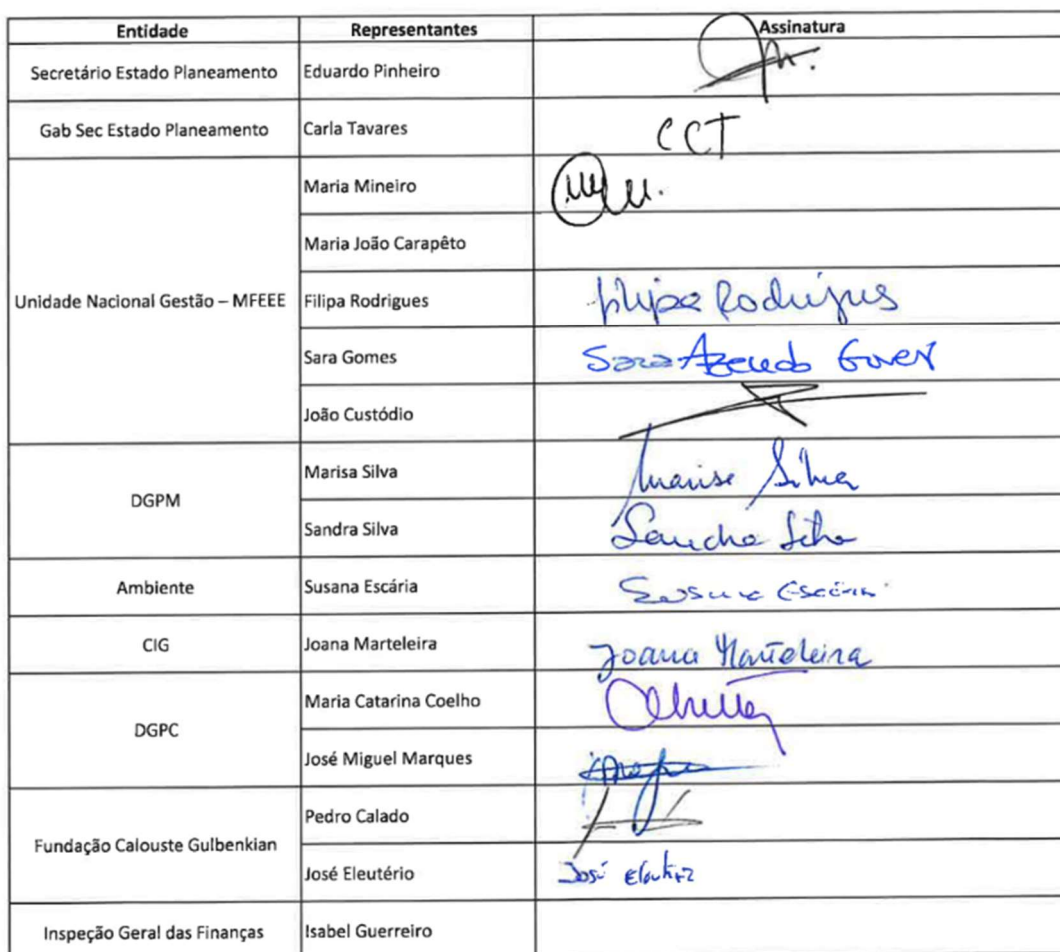 Entidade Representantes Assinatura
Secretário Estado Planeamento Eduardo Pinheiro
Gab Sec Estado Planeamento Carla Tavares CCT
Maria Mineiro
Maria João Carapêto
Unidade Nacional Gestão – MFEEE Filipa Rodrigues Filipa Rodrigues
Sara Gomes Sara Azevedo Gomes
João Custódio
DGPM
Marisa Silva Marisa Silva
Sandra Silva Sandra Silva
Ambiente Susana Escária Susana Escária
CIG Joana Marteleira Joana Marteleira
DGPC
Maria Catarina Coelho
José Miguel Marques
Fundação Calouste Gulbenkian
Pedro Calado
José Eleutério José Eleutério
Inspeção Geral das Finanças Isabel Guerreiro